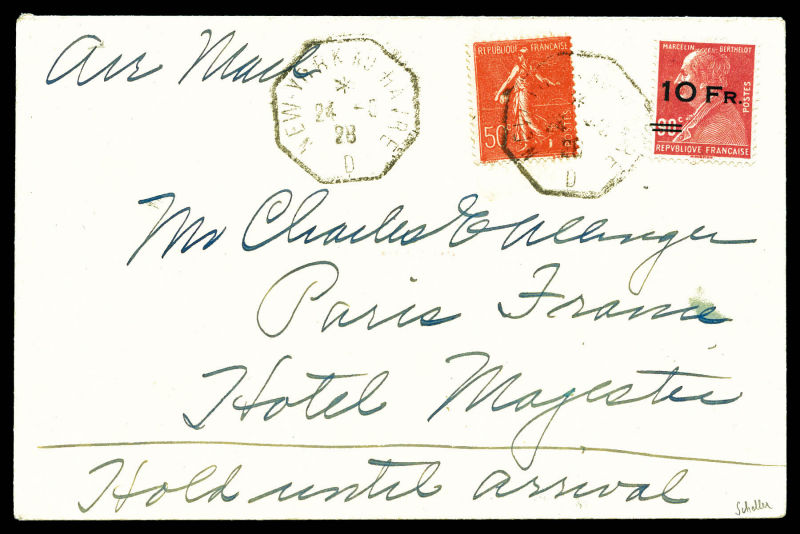 Air Mail
NEW-YORK AU HAVRE
*
24 -8
28
D
REPUBLIQUE FRANÇAISE
50
POSTES
MARCELIN BERTHELOT
10 FR.
90c
POSTES
REPVBLIQVE FRANÇAISE
D
Mr Charles E
Paris France
Hotel Majestic
Hold until arrival
Scheller